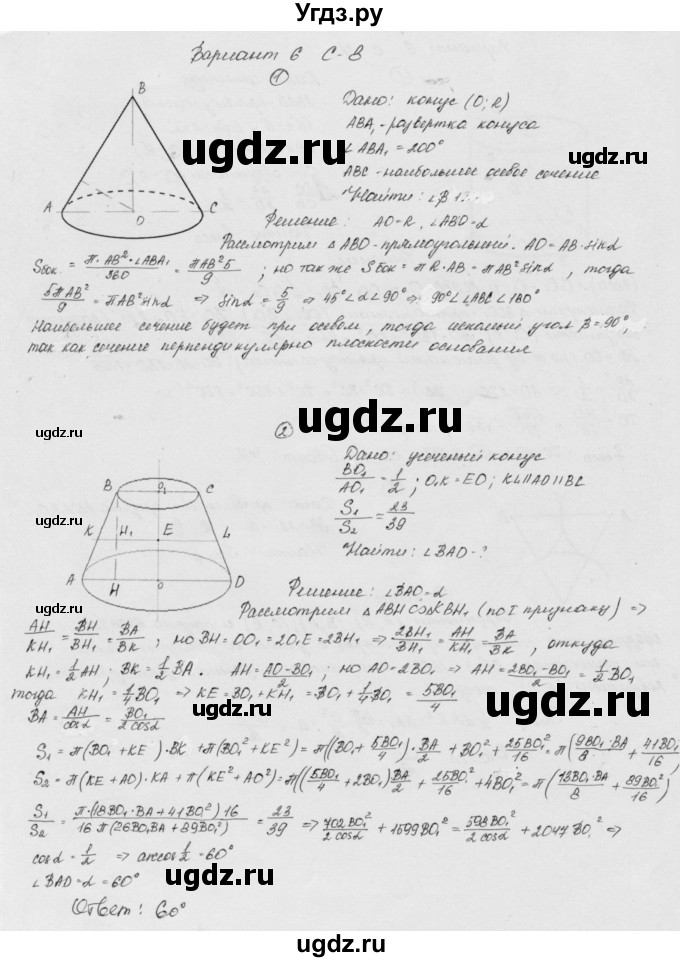 Угдз.ру
Вариант 6 С-8
1
Дано: конус (O; R)
ABA₁ - развертка конуса
∠ABA₁ = 200°
ABC - наибольшее осевое сечение
Найти: ∠B
Решение: AO = R, ∠ABO = α
Рассмотрим △ABO - прямоугольный. AO = AB·sinα
Sбок. = π·AB²·∠ABA₁/360 = πAB²5/9 ; но так же Sбок = πR·AB = πAB²sinα, тогда
5πAB²/9 = πAB²sinα ⇒ sinα = 5/9 ⇒ 45°<α<90° ⇒ 90°<∠ABC<180°
Наибольшее сечение будет при осевом, тогда искомый угол β = 90°,
так как сечение перпендикулярно плоскости основания
B
A
O
C
ugdz.ru
ugdz.ru
ugdz.ru
ugdz.ru
ugdz.ru
ugdz.ru
2
Дано: усеченый конус
BO₁/AO₁ = 1/2 ; O₁K = EO; KL∥AO∥BC
S₁/S₂ = 23/39
Найти: ∠BAO - ?
B O₁ C
K H₁ E L
A H O D
Решение: ∠BAO = α
Рассмотрим △ABH ∞ △KBH₁ (по I признаку) ⇒
AH/KH₁ = BH/BH₁ = BA/BK ; но BH = OO₁ = 2O₁E = 2BH₁ ⇒ 2BH₁/BH₁ = AH/KH₁ = BA/BK, откуда
KH₁ = 1/2 AH ; BK = 1/2 BA. AH = AO-BO₁/2 ; но AO = 2BO₁ ⇒ AH = 2BO₁-BO₁/2 = 1/2 BO₁
тогда KH₁ = 1/4 BO₁ ⇒ KE = BO₁ + KH₁ = BO₁ + 1/4 BO₁ = 5BO₁/4
BA = AH/cosα = BO₁/2cosα
S₁ = π(BO₁ + KE)·BK + π(BO₁² + KE²) = π((BO₁ + 5BO₁/4)·BA/2 + BO₁² + 25BO₁²/16 = π(9BO₁·BA/8 + 41BO₁²/16)
S₂ = π(KE + AO)·KA + π(KE² + AO²) = π((5BO₁/4 + 2BO₁)BA/2 + 25BO₁²/16 + 4BO₁² = π(13BO₁·BA/8 + 89BO₁²/16)
S₁/S₂ = π·(18BO₁·BA + 41BO₁²)16/16π(26BO₁BA + 89BO₁²) = 23/39 ⇒ 702BO₁²/2cosα + 1599BO₁² = 598BO₁²/2cosα + 2047BO₁² ⇒
cosα = 1/2 ⇒ arccos 1/2 = 60°
∠BAD = α = 60°
Ответ: 60°
ugdz.ru
ugdz.ru
ugdz.ru
ugdz.ru
ugdz.ru
ugdz.ru